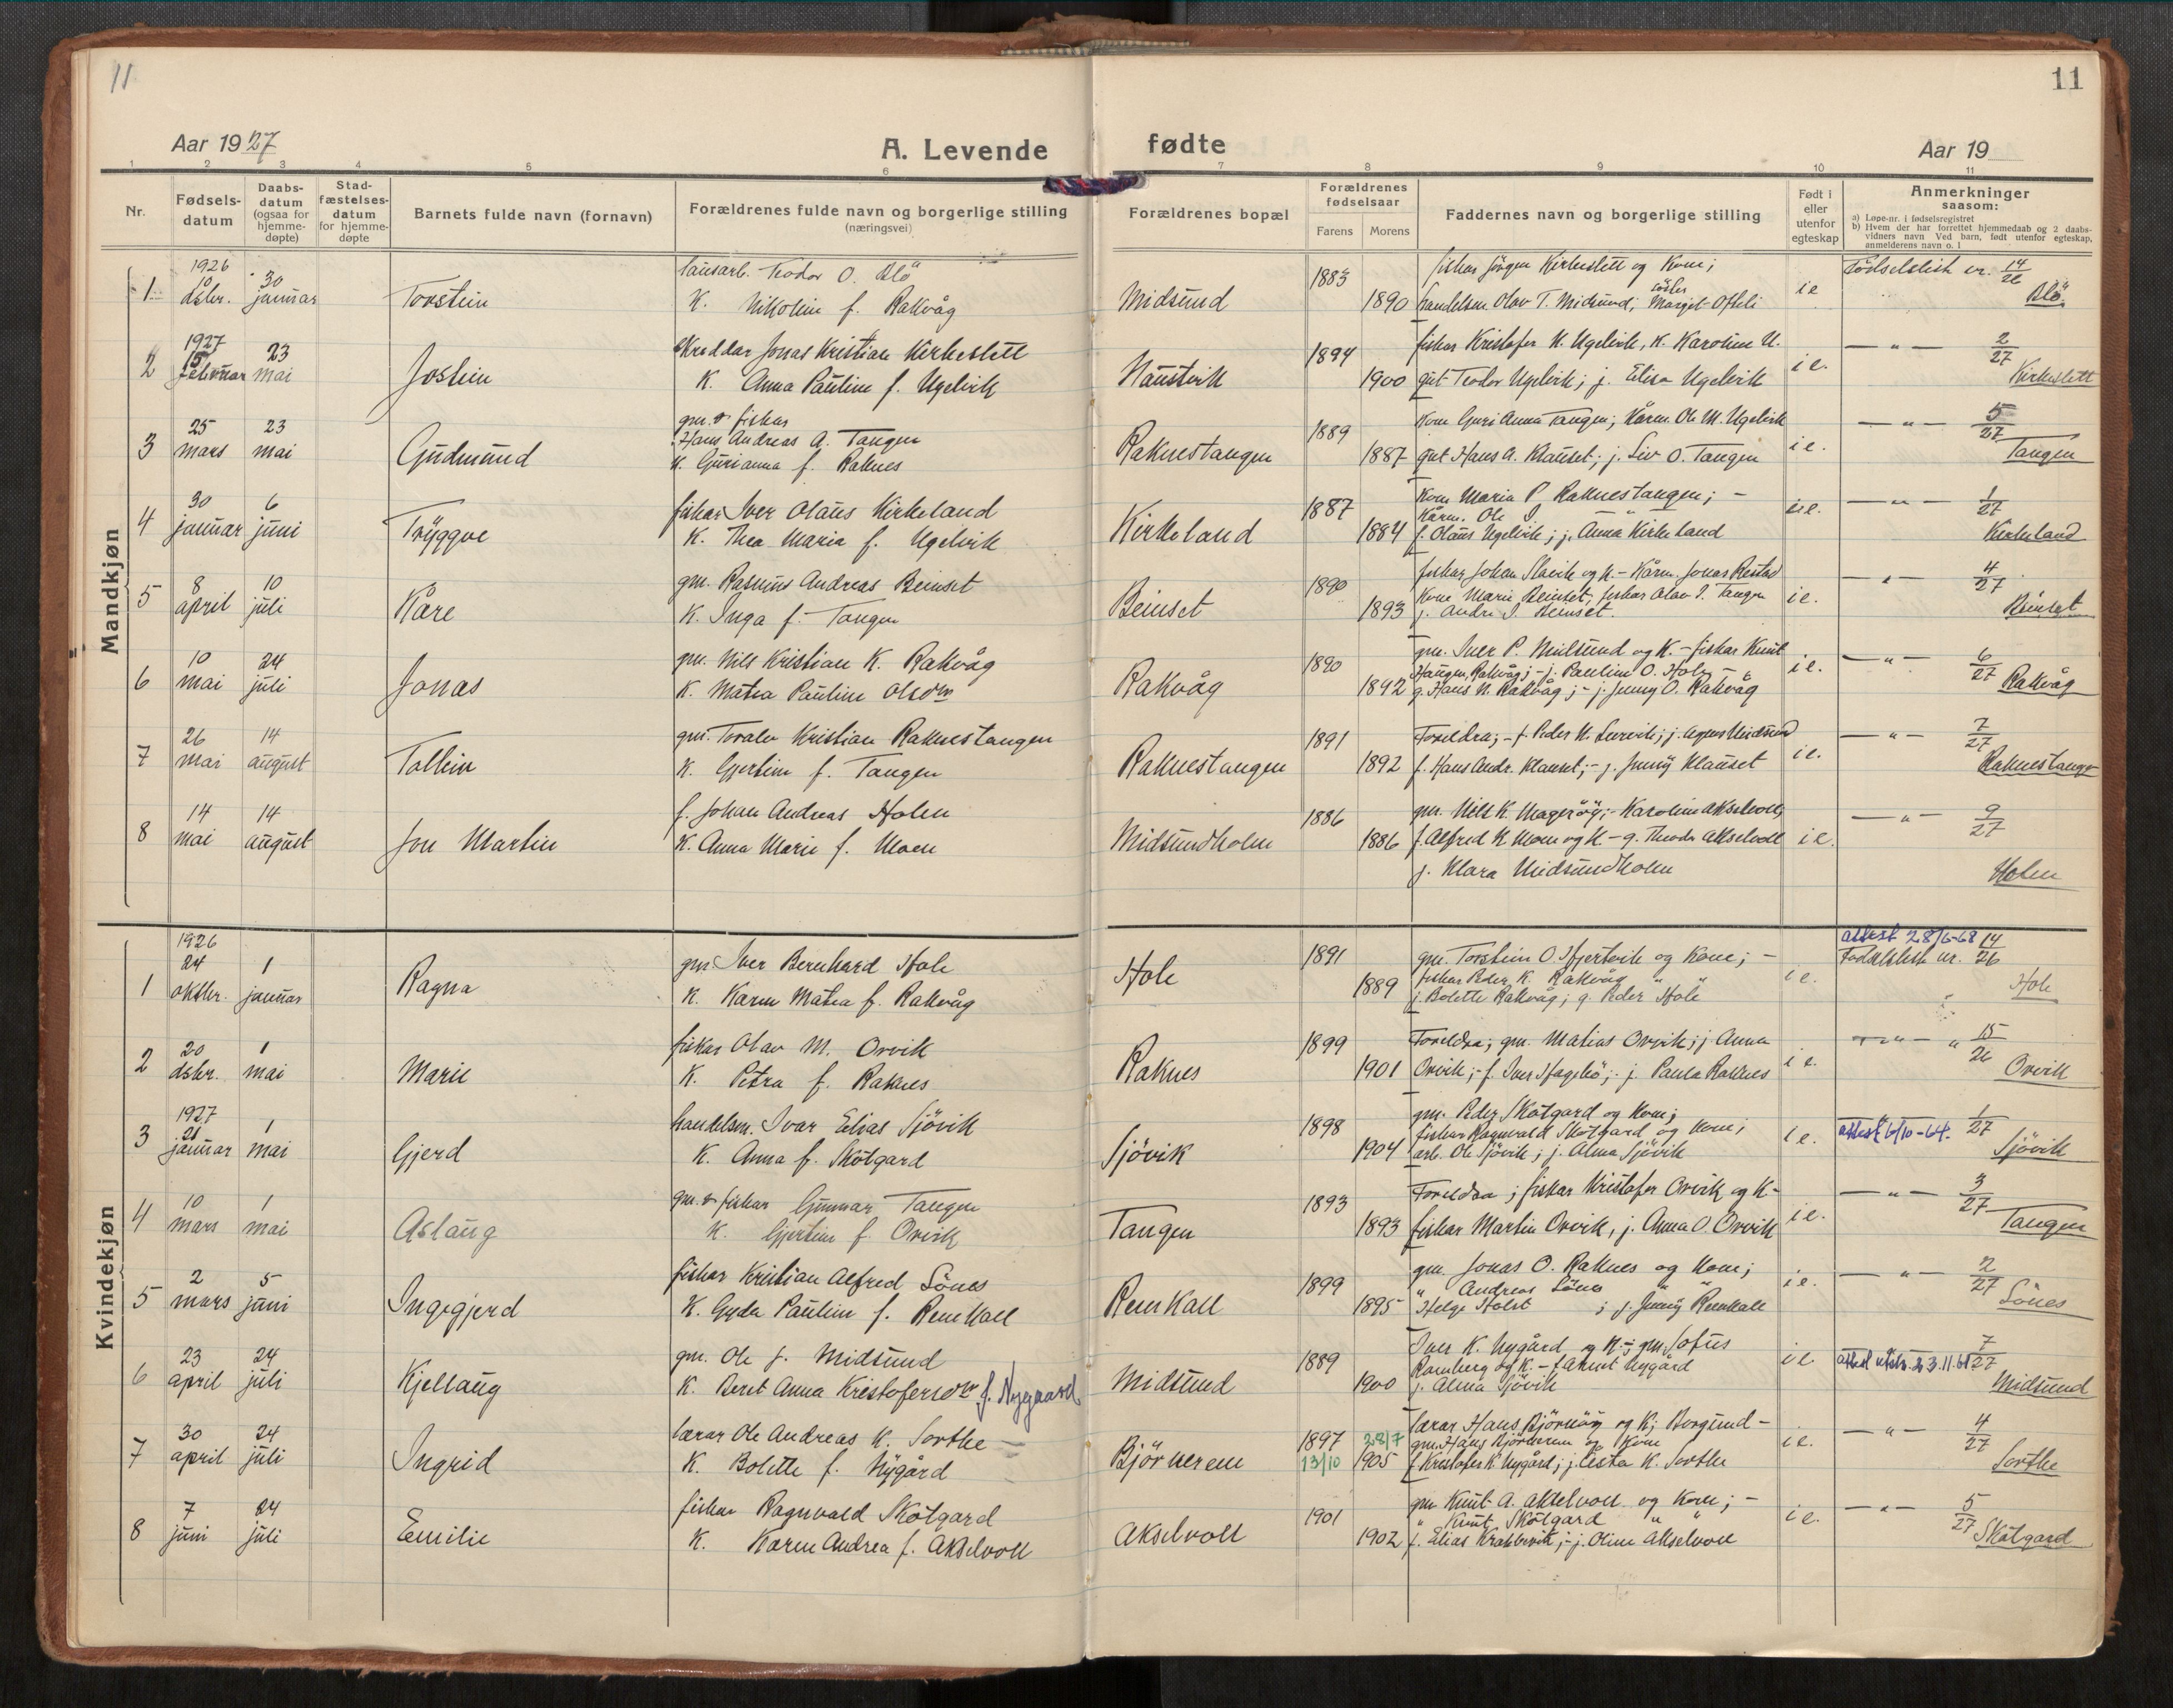 11
11
Aar 1927
A. Levende
fødte
Aar 19
1 2 3 4 5 6 7 8 9 10 11
Nr.
Fødsels-
datum
Daabs-
datum
(ogsaa for
hjemme-
døpte)
Stad-
fæstelses-
datum
for hjemme-
døpte
Barnets fulde navn (fornavn)
Forældrenes fulde navn og borgerlige stilling
(næringsvei)
Forældrenes bopæl
Forældrenes
fødselsaar
Farens Morens
Faddernes navn og borgerlige stilling
Født i
eller
utenfor
egteskap
Anmerkninger
saasom:
a) Løpe-nr. i fødselsregistret
b) Hvem der har forrettet hjemmedaab og 2 daabs-
vidners navn Ved barn, født utenfor egteskap,
anmelderens navn o. l
Mandkjøn
1
1926
10 dsbr.
30 januar
Torstein
lausarb. Teodor O. Blö
K. Nikoline f. Rakvåg
Midsund
1883
1890
fiskar Jörgen Kirkeslett og Kone;
handelsm. Olav T. Midsund; söster Margit Ofteli
i e
Födselslist nr. 14/26
Blö
2
1927
15 februar
23 mai
Jostein
Skreddar Jonas Kristian Kirkeslett
K. Anna Pauline f. Ugelvik
Naustvik
1894
1900
fiskar Kristofer K. Ugelvik, K. Karoline U.
gut Teodor Ugelvik; j. Elisa Ugelvik
i e.
— " — 2/27
Kirkeslett
3
25 mars
23 mai
Gudmund
gm. & fiskar
Hans Andreas A. Tangen
K. Gurianna f. Raknes
Raknestangen
1889
1887
Kone Guri Anna Tangen; Kårm. Ole M. Ugelvik
gut Hans A. Klauset; j. Liv O. Tangen
i e.
— " — 5/27
Tangen
4
30 januar
6 juni
Tryggve
fiskar Iver Olaus Kirkeland
K. Thea Maria f. Ugelvik
Kirkeland
1887
1884
Kone Maria P. Raknestangen; -
Kårm. Ole I. " —
f. Olaus Ugelvik; j. Anna Kirkeland
i e.
— " — 1/27
Kirkeland
5
8 april
10 juli
Kåre
gm. Rasmus Andreas Beinset
K. Inga f. Tangen
Beinset
1890
1893
fiskar Johan Slavik og K. - Kårm. Jonas Restad
Kone Marie Beinset; fiskar Olav I. Tangen
j. Andre I. Beinset.
i e.
— " — 4/27
Beinset
6
10 mai
24 juli
Jonas
gm. Nils Kristian K. Rakvåg
K. Matea Pauline Olsdtr
Rakvåg
1890
1892
gm. Iver P. Midsund og K. - fiskar Knut
Haugen, Rakvåg; - j. Pauline O. Hole —
g. Hans N. Rakvåg; - j. Jenny O. Rakvåg
i e.
— " — 6/27
Rakvåg
7
26 mai
14 august
Tollein
gm. Toralv Kristian Raknestangen
K. Gjertine f. Tangen
Raknestangen
1891
1892
Foreldra; - f. Peder K. Lervik; j. Agnes Midsund
f. Hans Andr. Klauset; - j. Jenny Klauset
i e.
— " — 7/27
Raknestangen
8
14 mai
14 august
Jon Martin
f. Johan Andreas Holen
K. Anna Marie f. Moen
Midsundholm
1886
1886
gm. Nils K. Magerøy; - Karoline Akselvoll,
f. Alfred K. Moen og K. - g. Theodor Akselvoll
j. Klara Midsundholm
i e.
— " — 9/27
Holen
Kvindekjøn
1
1926
24 oktbr.
1 januar
Ragna
gm Iver Bernhard Hole
K. Karen Matea f. Rakvåg
Hole
1891
1889
gm. Torstein O. Hjertvik og Kone; -
fiskar Peder K. Rakvåg " "
j. Bolette Rakvåg; g. Peder Hole
i e.
attest 28/6-68
Födselslist nr. 14/26
Hole
2
20 dsbr.
1 mai
Marie
fiskar Olav M. Orvik
K. Petra f. Raknes
Raknes
1899
1901
Foreldra; gm. Matias Orvik; j. Anna
Orvik; - f. Iver Hagebö; - j. Paula Raknes
i e.
— " — " 15/26
Orvik
3
1927
21 januar
1 mai
Gjerd
handelsm. Ivar Elias Sjövik
K. Anna f. Skotgard
Sjövik
1898
1904
gm. Peder Skotgard og Kone;
fiskar Ragnvald Skotgard og Kone;
arb. Ole Sjövik; j. Alma Sjövik
i e.
attest 6/10-64. 1/27
Sjövik
4
10 mars
1 mai
Aslaug
gm. & fiskar Gunnar Tangen
K. Gjertine f. Orvik
Tangen
1893
1893
Foreldra; fiskar Kristofer Orvik og K-
fiskar Martin Orvik, j. Anna O. Orvik
i e.
— " — 3/27
Tangen
5
2 mars
5 juni
Ingegjerd
fiskar Kristian Alfred Sönes
K. Gyda Pauline f. Remkall
Remkall
1899
1895
gm. Jonas O. Raknes og Kone;
" Andreas Sönes " "
Helge Holst ; j. Jenny Remkall
i e.
— " — 2/27
Sönes
6
23 april
24 juli
Kjellaug
gm. Ole J. Midsund
K. Beret Anna Kristofersdtr f. Nygaard
Midsund
1889
1900
Iver K. Nygård og K. - j gm. Sofus
Ramberg og K. - f. Knut Nygård
j. Alma Sjövik
i e.
attest utstr. 23.11.61 7/27
Midsund
7
30 april
24 juli
Ingrid
lærar Ole Andreas K. Sorthe —
K. Bolette f. Nygård
Björnerem
1897 28/7
13/10 1905
lærar Hans Björnöy og K; Borgund -
gm. Hans Björnerem og Kone
f. Kristofer K. Nygård; j. Esta K. Sorthe
i e.
— " — 4/27
Sorthe
8
7 juni
24 juli
Emilie
fiskar Ragnvald Skotgard
K. Karen Andrea f. Akselvoll
Akselvoll
1901
1902
gm Knut A. Akselvoll og Kone; -
" Knut Skotgard " "
f. Elias Krabbevik; - j. Oline Akselvoll
i e.
— " — 5/27
Skotgard